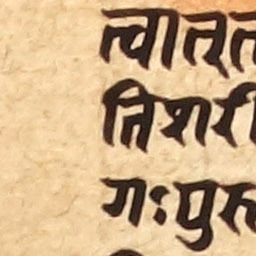 त्वात्त
त्तिशरी
गःपुरु